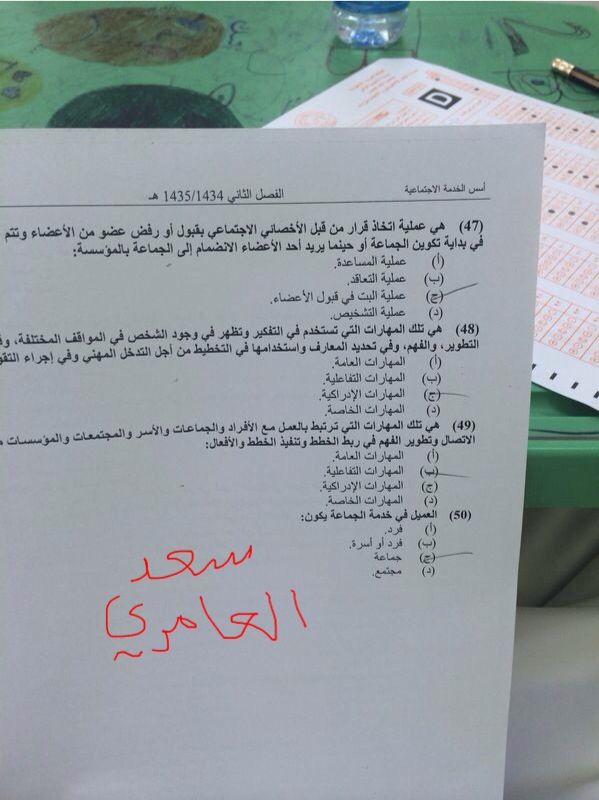 أسس الخدمة الاجتماعية
الفصل الثاني 1435/1434 هـ
(47) هي عملية اتخاذ قرار من قبل الأخصائي الاجتماعي بقبول أو رفض عضو من الأعضاء وتتم
في بداية تكوين الجماعة أو حينما يريد أحد الأعضاء الانضمام إلى الجماعة بالمؤسسة:
(أ) عملية المساعدة.
(ب) عملية التعاقد.
(ج) عملية البت في قبول الأعضاء.
(د) عملية التشخيص.
(48) هي تلك المهارات التي تستخدم في التفكير وتظهر في وجود الشخص في المواقف المختلفة،
التطوير، والفهم، وفي تحديد المعارف واستخدامها في التخطيط من أجل التدخل المهني وفي إجراء
(أ) المهارات العامة.
(ب) المهارات التفاعلية.
(ج) المهارات الإدراكية.
(د) المهارات الخاصة.
(49) هي تلك المهارات التي ترتبط بالعمل مع الأفراد والجماعات والأسر والمجتمعات والمؤسسات
الاتصال وتطوير الفهم في ربط الخطط وتنفيذ الخطط والأفعال:
(أ) المهارات العامة.
(ب) المهارات التفاعلية.
(ج) المهارات الإدراكية.
(د) المهارات الخاصة.
(50) العميل في خدمة الجماعة يكون:
(أ) فرد.
(ب) فرد أو أسرة.
(ج) جماعة
(د) مجتمع.
سعد
العامري
D